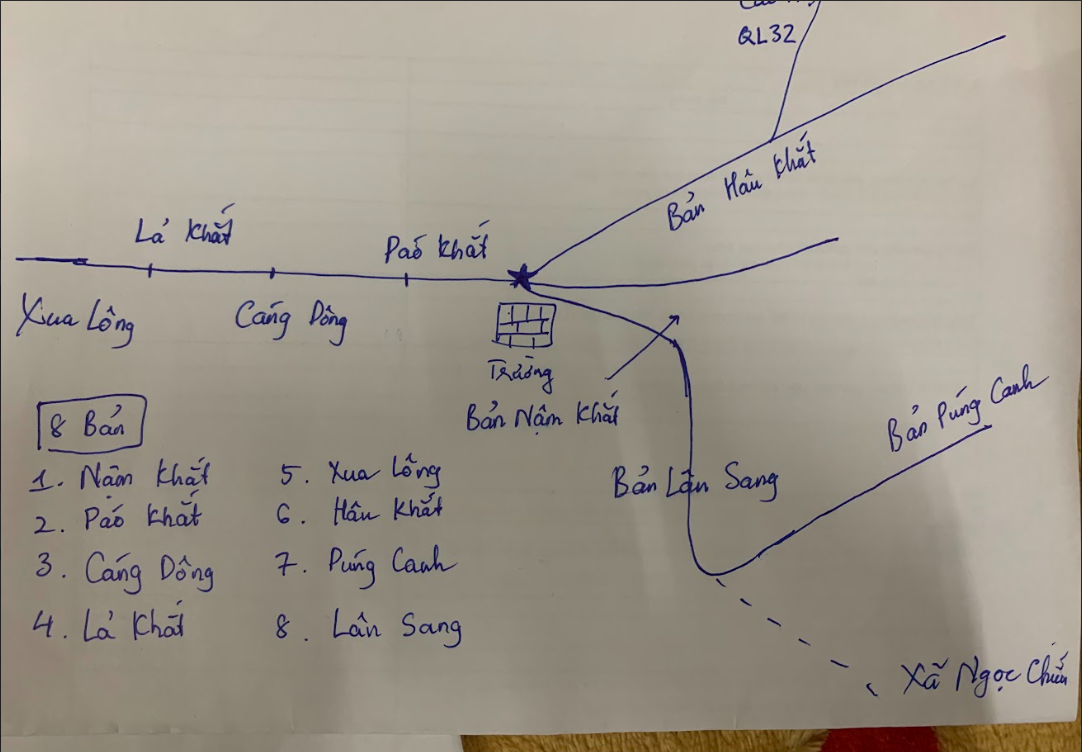 QL32
Bản Hâu Khắt
Lả Khắt
Paó Khắt
Xua Lông
Cáng Dông
Trường
Bản Nậm Khắt
Bản Púng Canh
8 Bản
Bản Lân Sang
1. Nậm Khắt
2. Paó Khắt
3. Cáng Dông
4. Lả Khắt
5. Xua Lông
6. Hâu Khắt
7. Púng Canh
8. Lân Sang
Xã Ngọc Chiến